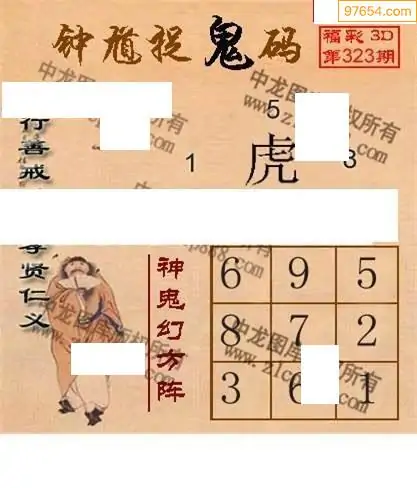 97654.com
钟馗捉鬼码
福彩3D
第323期
行善戒
5
1
虎
3
贤仁义
神鬼幻方阵
6 9 5
8 7 2
3 6 1
中龙图库版权所有